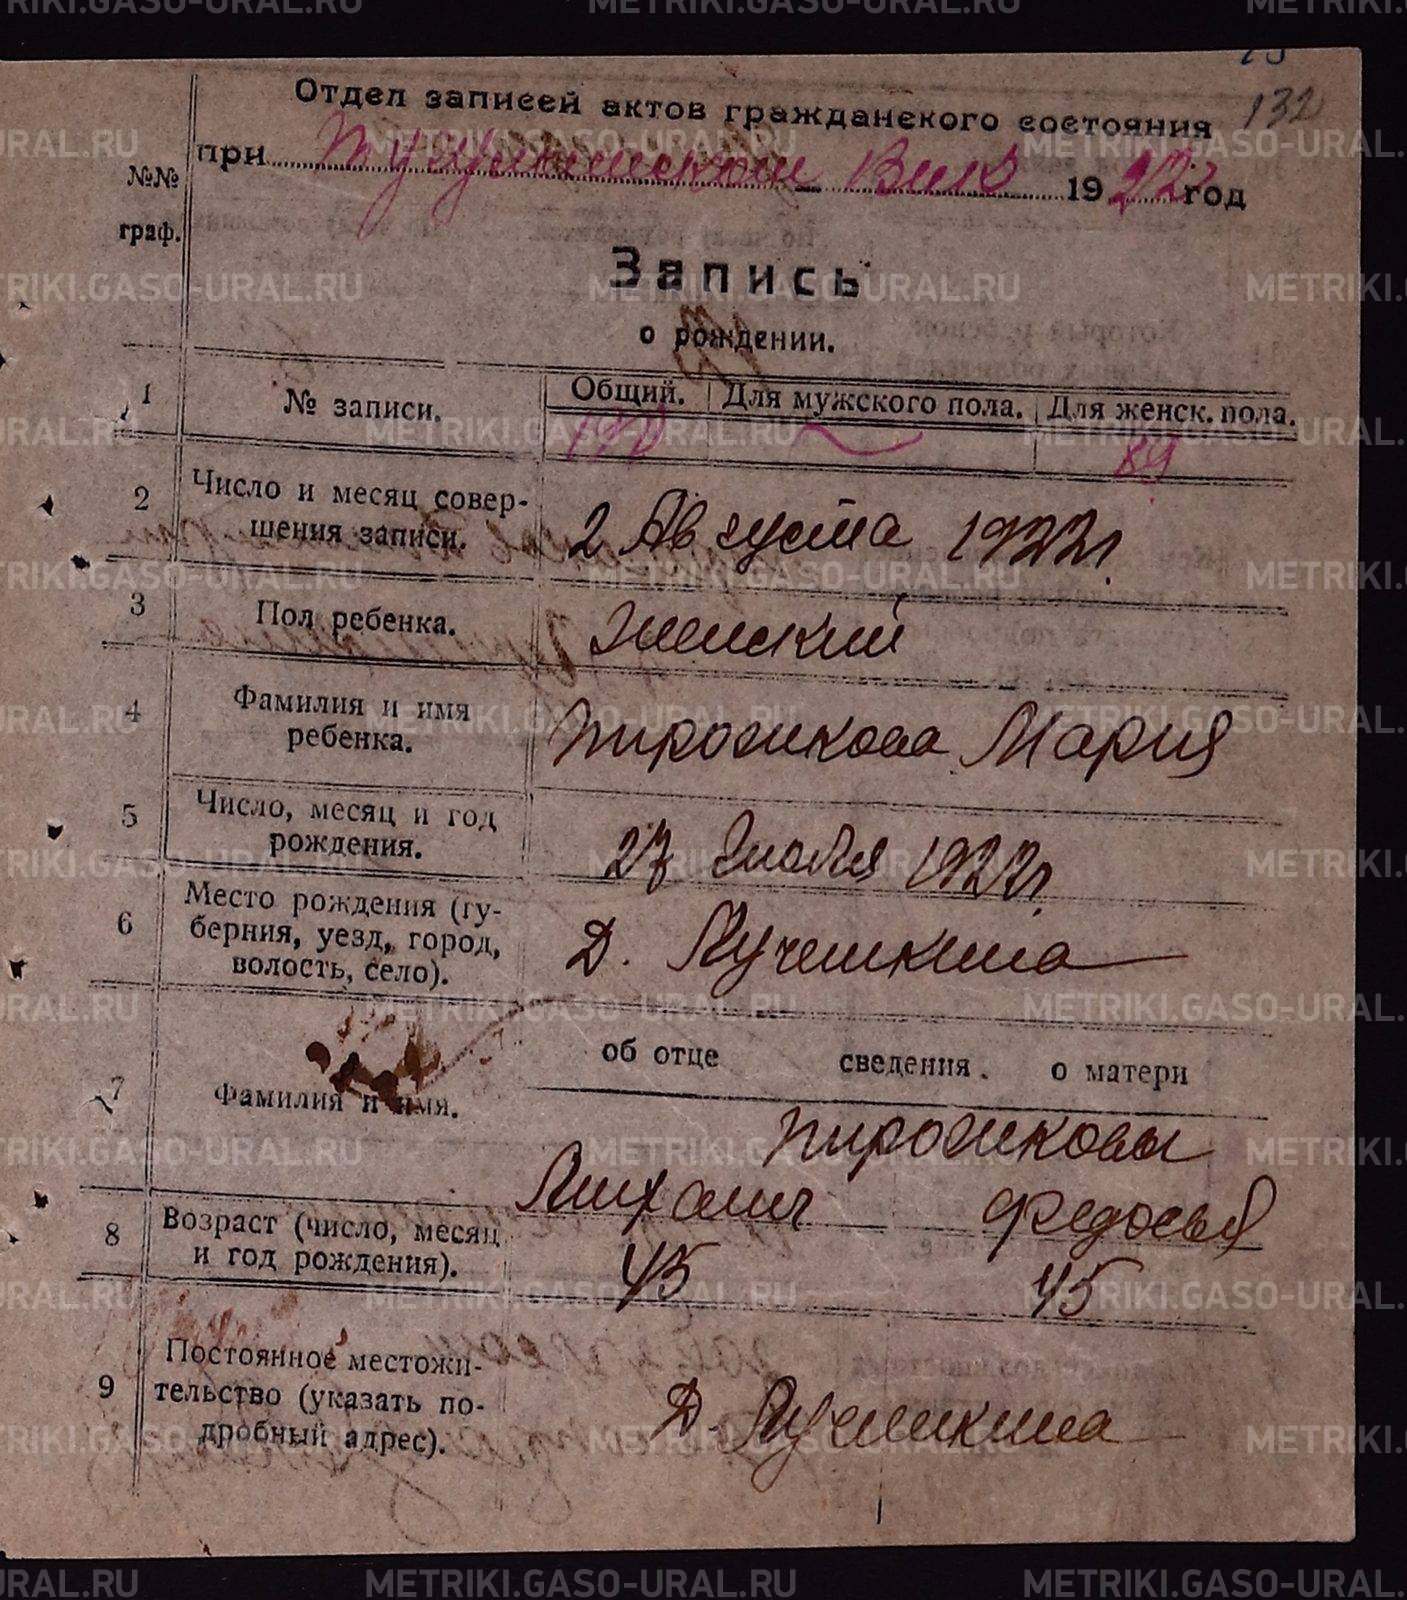 132
Отдел записей актов гражданского состояния
№№ граф.
при Вике 1922 год
Запись
о рождении.
1 № записи. Общий. Для мужского пола. Для женск. пола.
89
2 Число и месяц совер-
шения записи. 2 Августа 1922 г.
3 Пол ребенка. Женский
4 Фамилия и имя
ребенка. Пирожкова Мария
5 Число, месяц и год
рождения. 27 Июля 1922 г.
6 Место рождения (гу-
берния, уезд, город,
волость, село). Д. Лучешкина
об отце сведения. о матери
7 Фамилия и имя.
Пирожковы
Федосья
8 Возраст (число, месяц
и год рождения). 45 45
9 Постоянное местожи-
тельство (указать по-
дробный адрес). Д. Лучешкина
METRIKI.GASO-URAL.RU